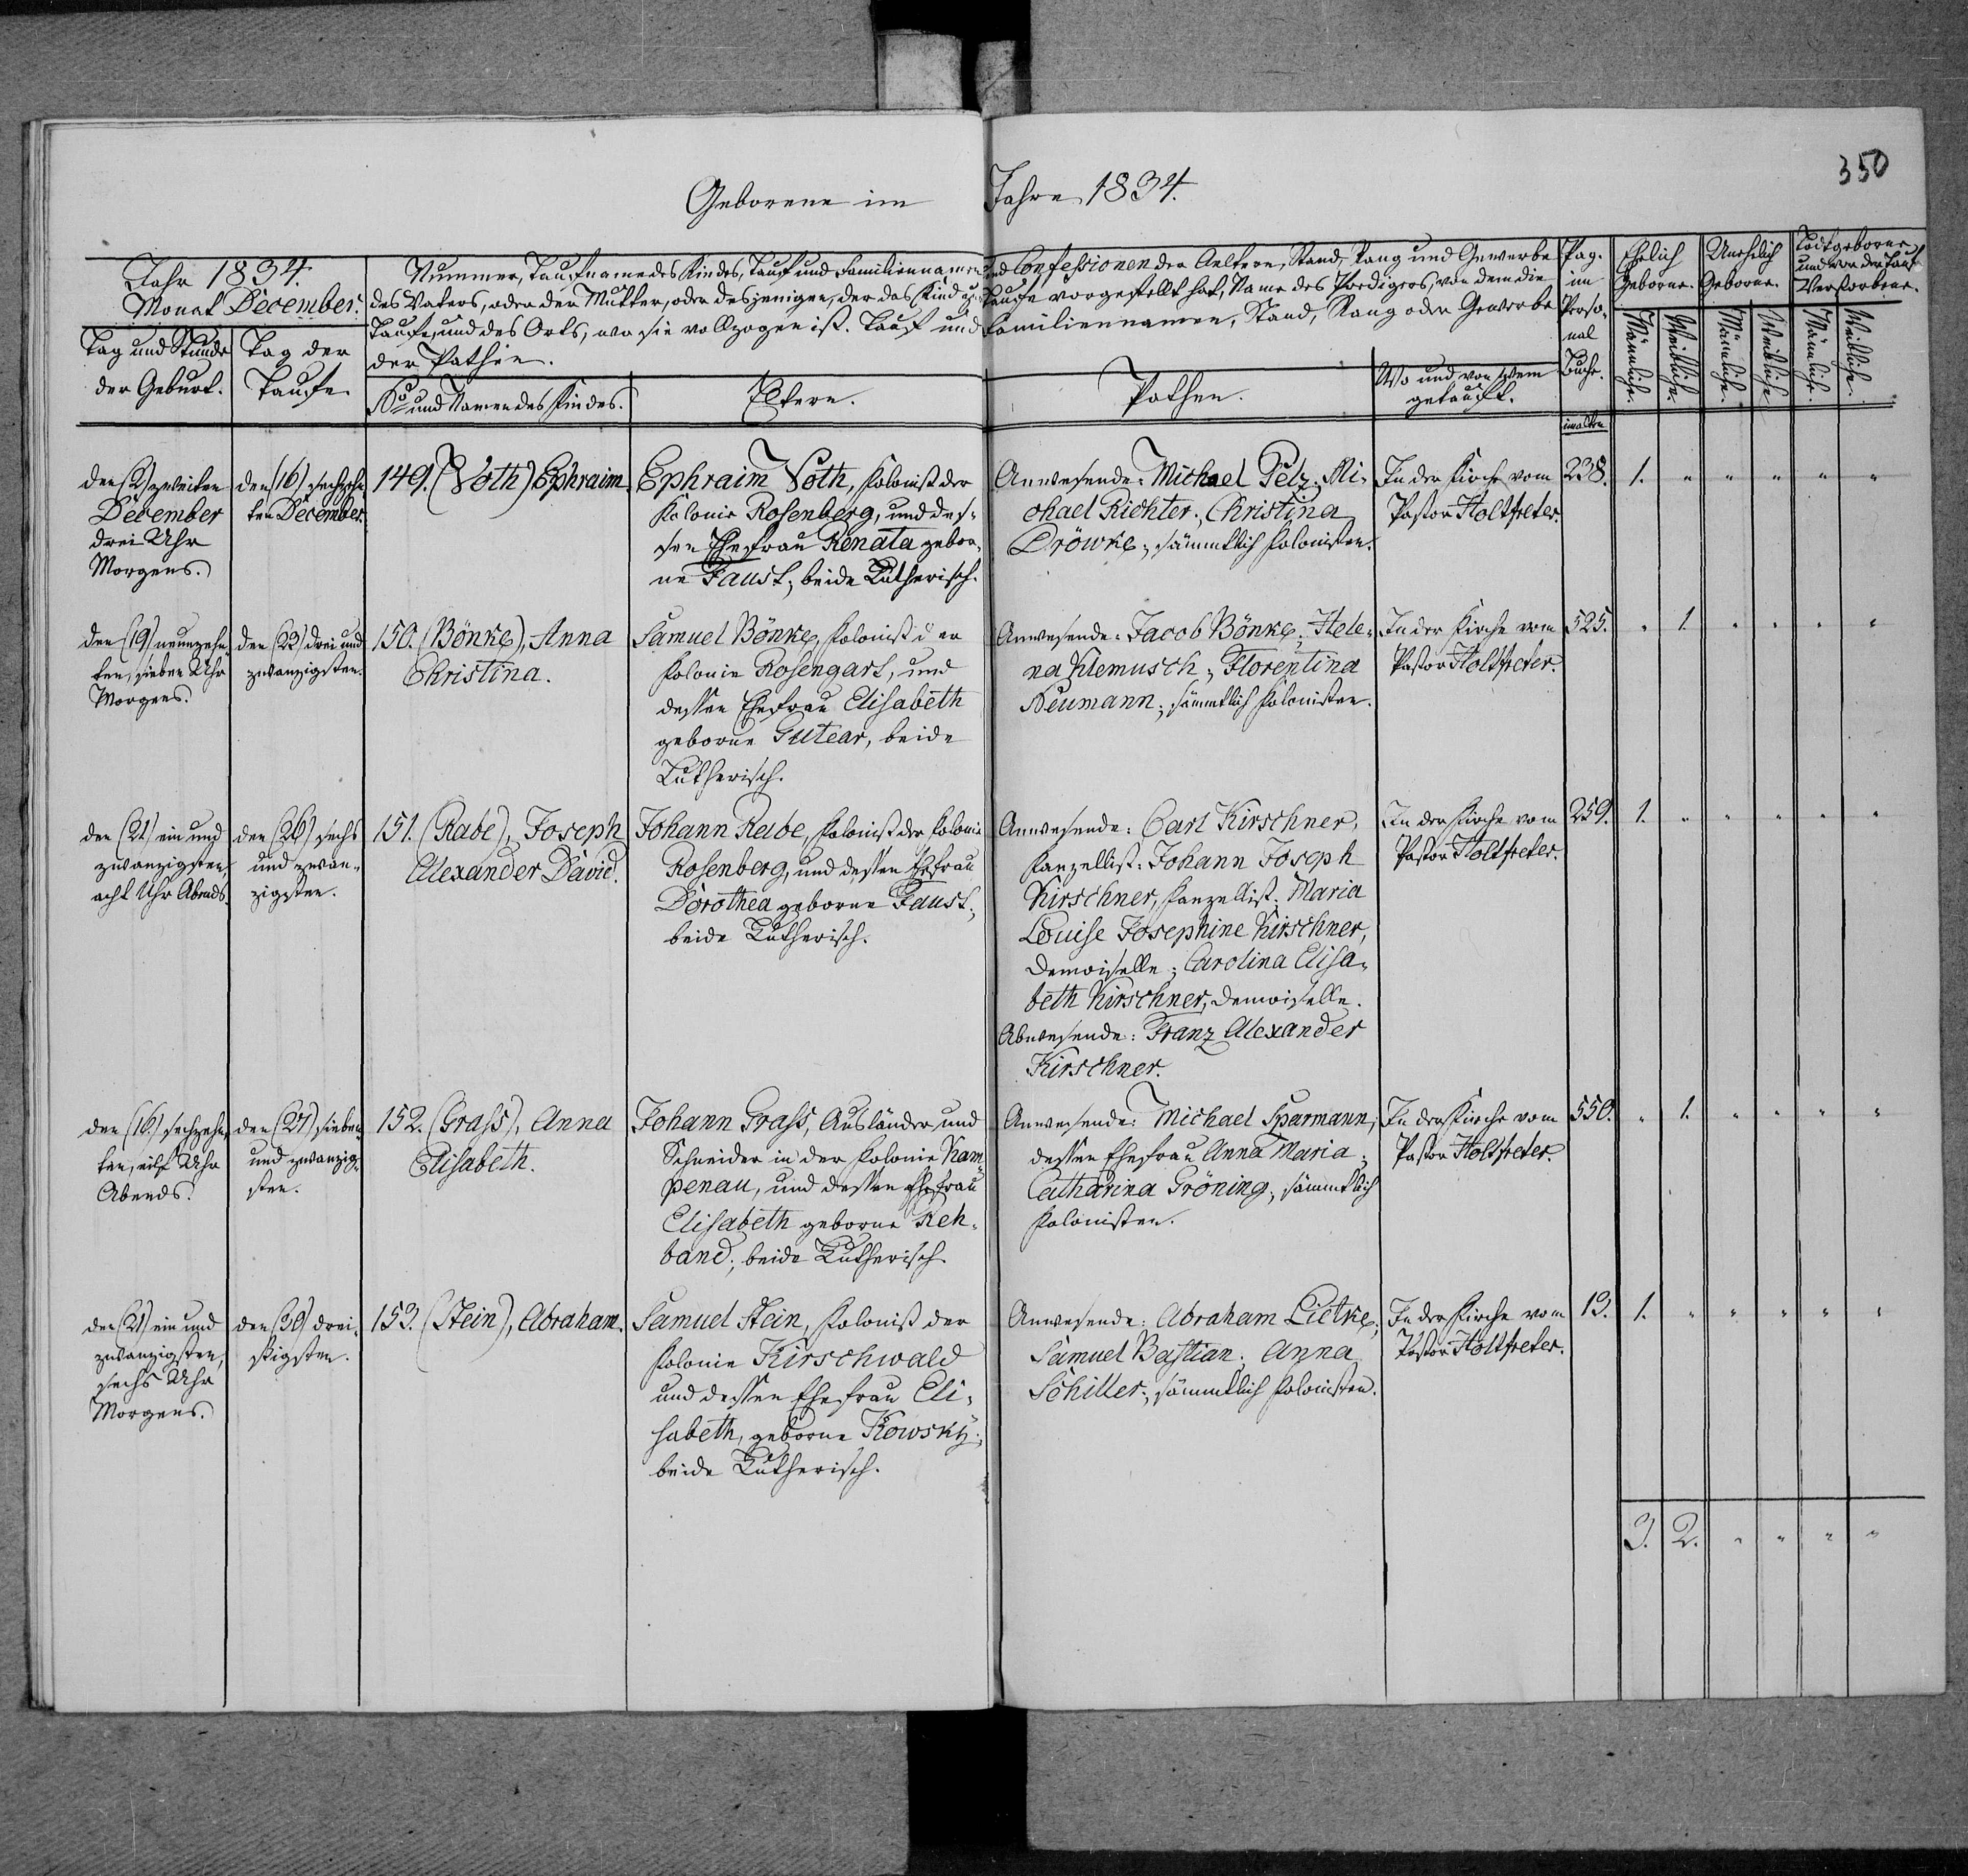 350
Geborene im Jahre 1834.
Jahr 1834.
Monat December.
Tag und Stunde
der Geburt.
Tag der
Taufe
Nummer, Taufname des Kindes, Tauf und Familiennamen und Confessionen der Aeltern, Stand, Rang und Gewerbe
des Vaters, oder der Mutter, oder desjenigen, der das Kind zur Taufe vorgestellt hat, Name des Predigers, von dem die
Taufe, und des Orts, wo sie vollzogen ist. Tauf und Familiennamen, Stand, Rang oder Gewerbe
der Pathen.
No und Namen des Kindes.
Eltern.
Pathen.
Wo und von wem
getauft.
Pag.
im
Perso-
nal
Buche.
Ehelich
Geborne.
Unehelich
Geborne.
Todtgeborne
und vor der Tauf
Verstorbene.
Männliche.
Weibliche.
Männliche.
Weibliche
Männliche.
Weibliche.
im alten
den (2) zweiten
December
drei Uhr
Morgens.
den (16) sechzehn
ten December.
149. (Voth) Ephraim
Ephraim Voth, Kolonist der
Kolonie Rosenberg, und des-
sen Ehefrau Renata gebor-
ne Faust; beide Lutherisch.
Anwesende: Michael Pelz; Mi-
chael Richter; Christina
Dröwke; sämmtlich Kolonisten.
In der Kirche vom
Pastor Holtfreter.
238. 1. " " " " "
den (19) neunzehn
ten, sieben Uhr
Morgens.
den (23) drei und
zwanzigsten.
150. (Bönke), Anna
Christina.
Samuel Bönke, Kolonist der
Kolonie Rosengart, und
dessen Ehefrau Elisabeth
geborne Gutear, beide
Lutherisch.
Anwesende: Jacob Bönke; Hele-
na Klemusch; Florentina
Neumann; sämmtlich Kolonisten.
In der Kirche vom
Pastor Holtfreter.
525. " 1. " " " "
den (21) ein und
zwanzigsten,
acht Uhr Abends.
den (26) sechs
und zwan-
zigsten.
151. (Rabe), Joseph
Alexander David.
Johann Rabe, Kolonist der Kolonie
Rosenberg, und dessen Ehefrau
Dorothea geborne Faust;
beide Lutherisch.
Anwesende: Carl Kirschner,
Kanzellist; Johann Joseph
Kirschner, Kanzellist; Maria
Louise Josephine Kirschner,
Demoiselle; Carolina Elisa-
beth Kirschner, Demoiselle.
Abwesende: Franz Alexander
Kirschner.
In der Kirche vom
Pastor Holtfreter.
259. 1. " " " " "
den (16.) sechzehn
ten, eilf Uhr
Abends.
den (27) sieben
und zwanzig-
sten.
152. (Grass), Anna
Elisabeth.
Johann Grass, Ausländer und
Schneider in der Kolonie Kam
penau, und dessen Ehefrau
Elisabeth geborne Reh-
band; beide Lutherisch
Anwesende: Michael Sparmann;
dessen Ehefrau Anna Maria;
Catharina Gröning; sämmtlich
Kolonisten.
In der Kirche vom
Pastor Holtfreter.
550. " 1. " " " "
den (21) ein und
zwanzigsten,
sechs Uhr
Morgens.
den (30) drei-
ßigsten.
153. (Stein), Abraham.
Samuel Stein, Kolonist der
Kolonie Kirschwald
und dessen Ehefrau Eli-
sabeth, geborne Kowsky;
beide Lutherisch.
Anwesende: Abraham Lietke;
Samuel Bastian; Anna
Schiller; sämmtlich Kolonisten.
In der Kirche vom
Pastor Holtfreter.
13. 1. " " " " "
3. 2. " " " "